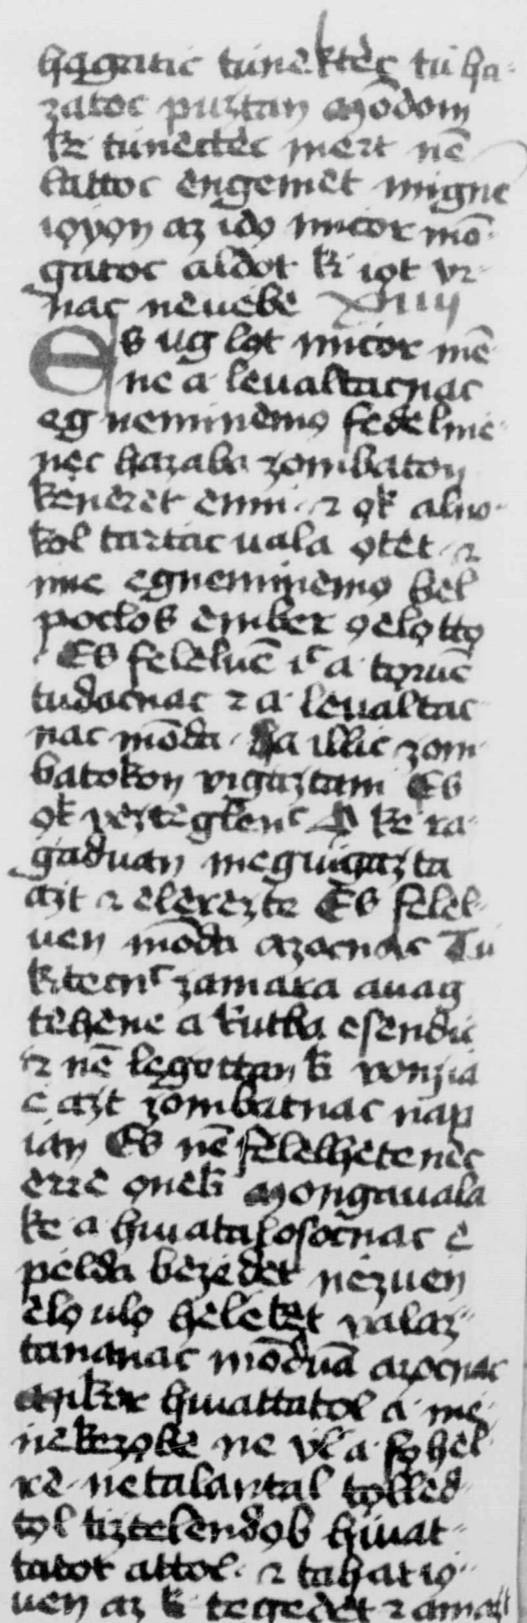 hagatic túnektèc tú ha-
zatoc puztan Mōdom
k̄ túnectèc mert nē
lattoc engemèt mígnē
iọuọn az ido micor mō-
gatoc aldot k̄ iọt vr-
nac neuèbè XIIII
Es ug lọt micor mē-
ne a leualtacnac
eg neminèmọ feḍelmē-
nèc hazaba zombaton
kèńeret ènni · ⁊ ọk aluo-
kol tartac uala ọtèt · ⁊
imè egneminèmọ bel
poclos èmber ọelọttọ
Es felèluē iᶜ a tọruē
tudocnac ⁊ a leualtac-
nac mōda · Ha illic zom-
batokon vigaztani Es
ọk vezteglènᶜ Ọ kè ra-
gaduan meguigazta
azt ⁊ èlèrèztè Es felèl-
uèn mōda azocnac Tú
kztetècnᶜ zamara auag
tèhènè a kutba esèndic
⁊ nē lègottan k̄ vonzia
è azt zombatnac nap
ian Es nē felèlhètènèc
èrrè ọnèk̄ Mongauala
kè a hiuatalosocnac è
pèlda bèzèdèt nèzuèn
èlọ ulọ hèlèkèt valaz-
tananac mōduā azocnac
Mikor hiuattatol a mè-
nèkèzọbè ne vl̄ a fọ hèl-
rè · netalantal tọllèd-
tọl tiztèlèndọb hiuat-
tatot attol · ⁊ tahat iọ-
uèn az k̄ tègèdèt ⁊ amazt